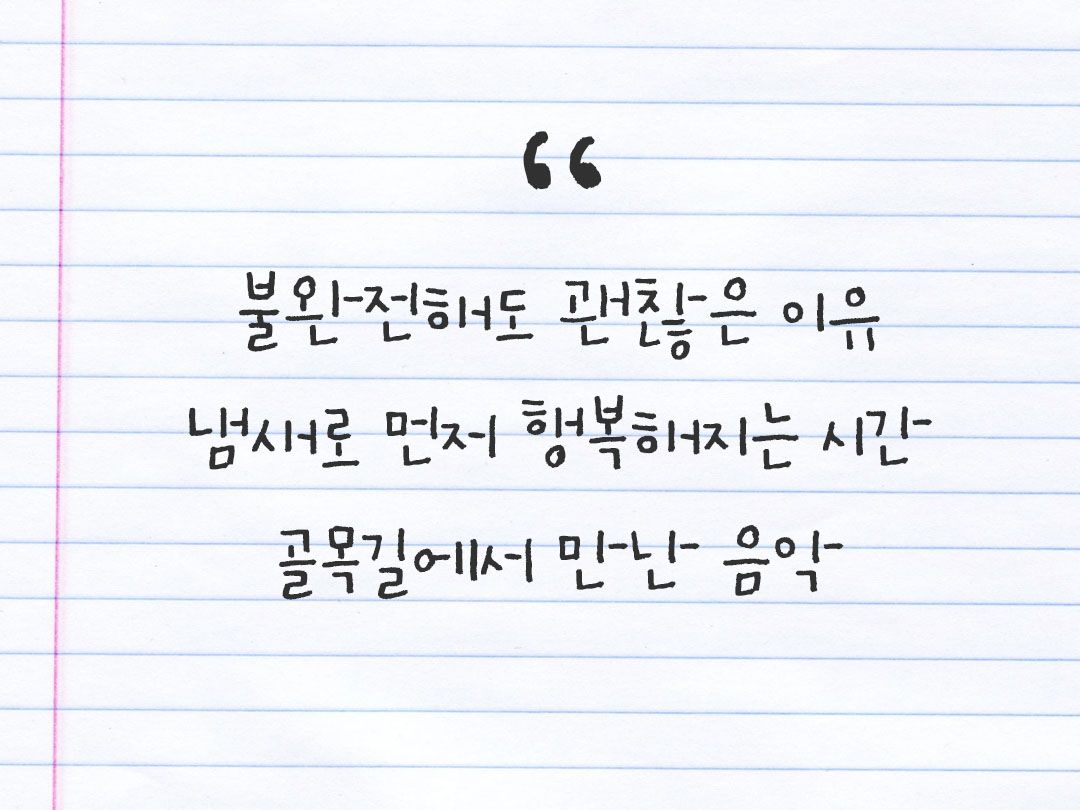 “
불완전해도 괜찮은 이유
냄새로 먼저 행복해지는 시간
골목길에서 만난 음악